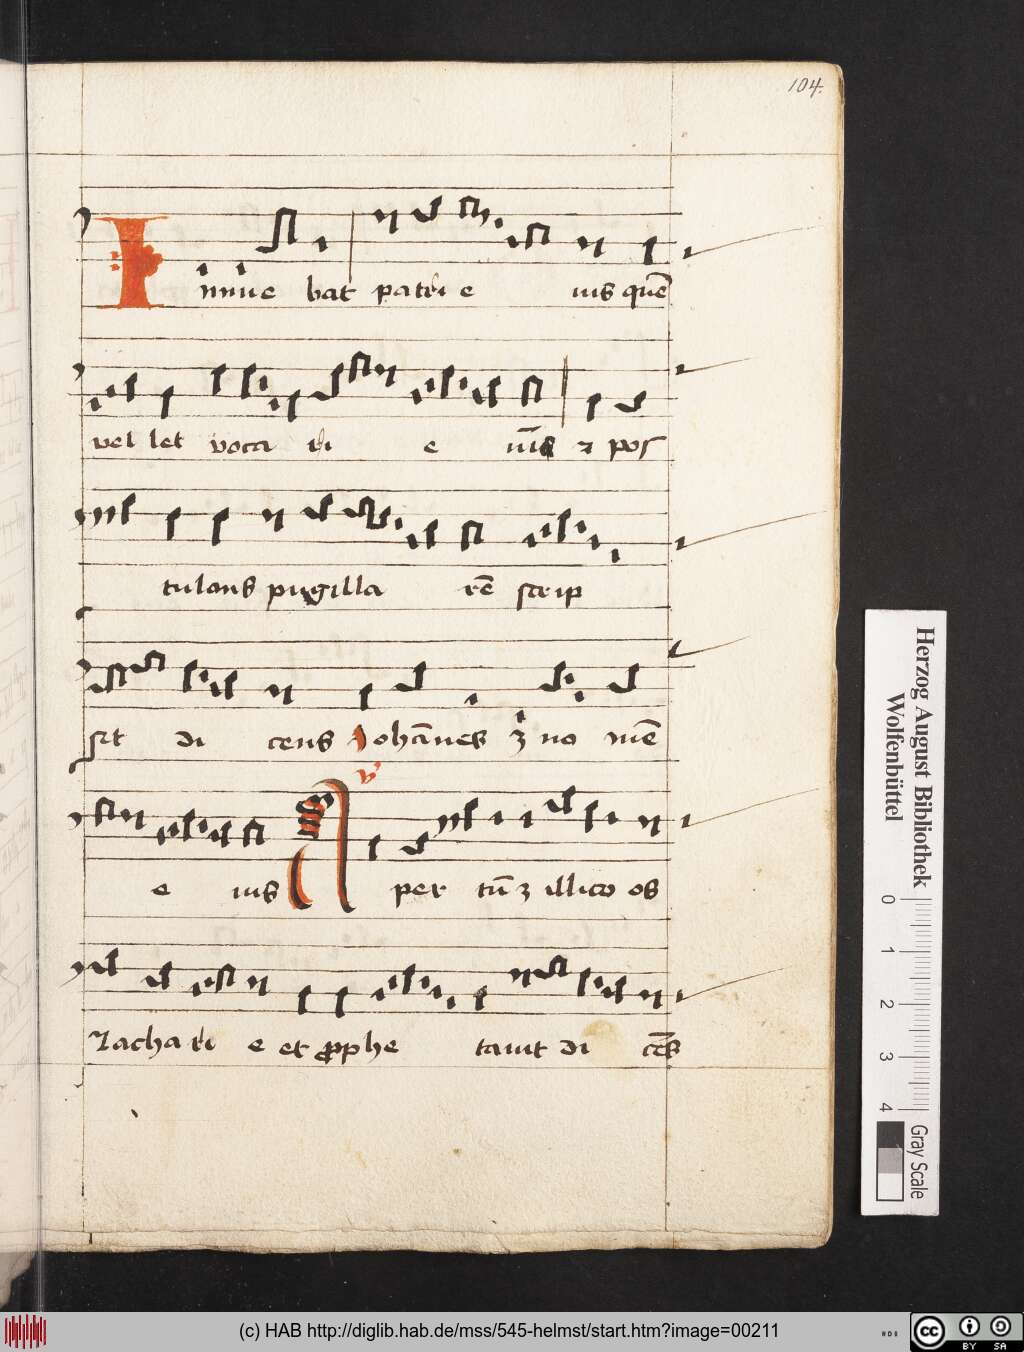 104.
Innue bat patri e ius quē
vel let voca ri e ūis ⁊ pos
tulans pugilla rē scrip
sit di cens Johānes ʒ no mē
e ius Aper tū ʒ illico os
Zacha ri e et ꝓphe tauit di cēs
Herzog August Bibliothek
Wolfenbüttel
0 1 2 3 4
Gray Scale
(c) HAB http://diglib.hab.de/mss/545-helmst/start.htm?image=00211
cc BY SA